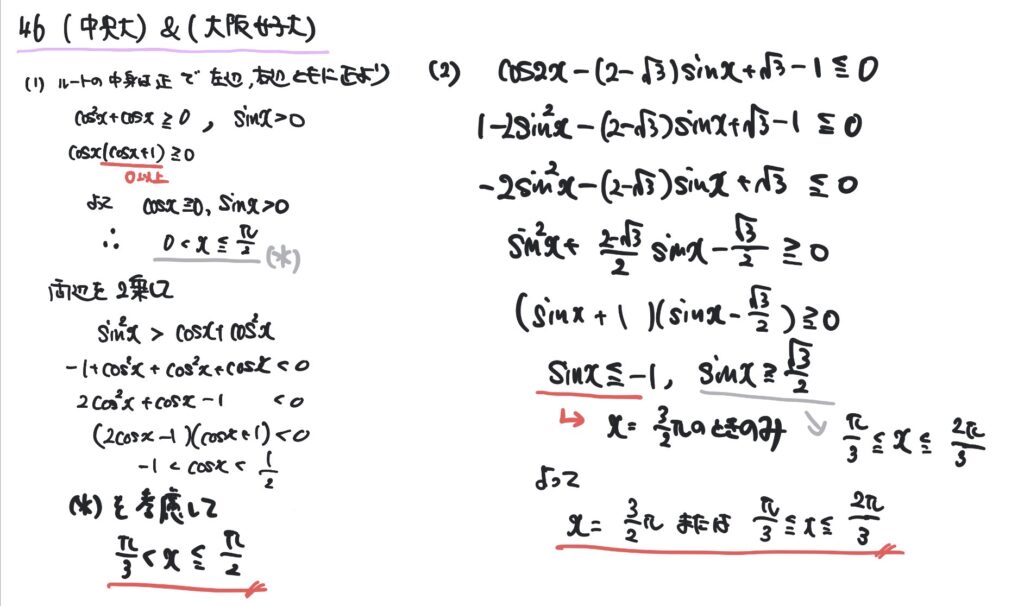 46 (中央大) & (大阪女子大)
(1) ルートの中身は正で 左辺, 右辺ともに正より
cos²x+cosx≧0 , sinx>0
cosx(cosx+1)≧0
0以上
よって cosx≧0, sinx>0
∴ 0<x≦π/2 (*)
両辺を2乗して
sin²x > cosx+cos²x
-1+cos²x+cos²x+cosx<0
2cos²x+cosx-1 <0
(2cosx-1)(cosx+1)<0
-1<cosx<1/2
(*)を考慮して
π/3<x≦π/2
(2) cos2x-(2-√3)sinx+√3-1≦0
1-2sin²x-(2-√3)sinx+√3-1≦0
-2sin²x-(2-√3)sinx+√3≦0
sin²x+(2-√3)/2 sinx-√3/2≧0
(sinx+1)(sinx-√3/2)≧0
sinx≦-1, sinx≧√3/2
↳ x=3/2πのときのみ ↘ π/3≦x≦2π/3
よって
x=3/2π または π/3≦x≦2π/3